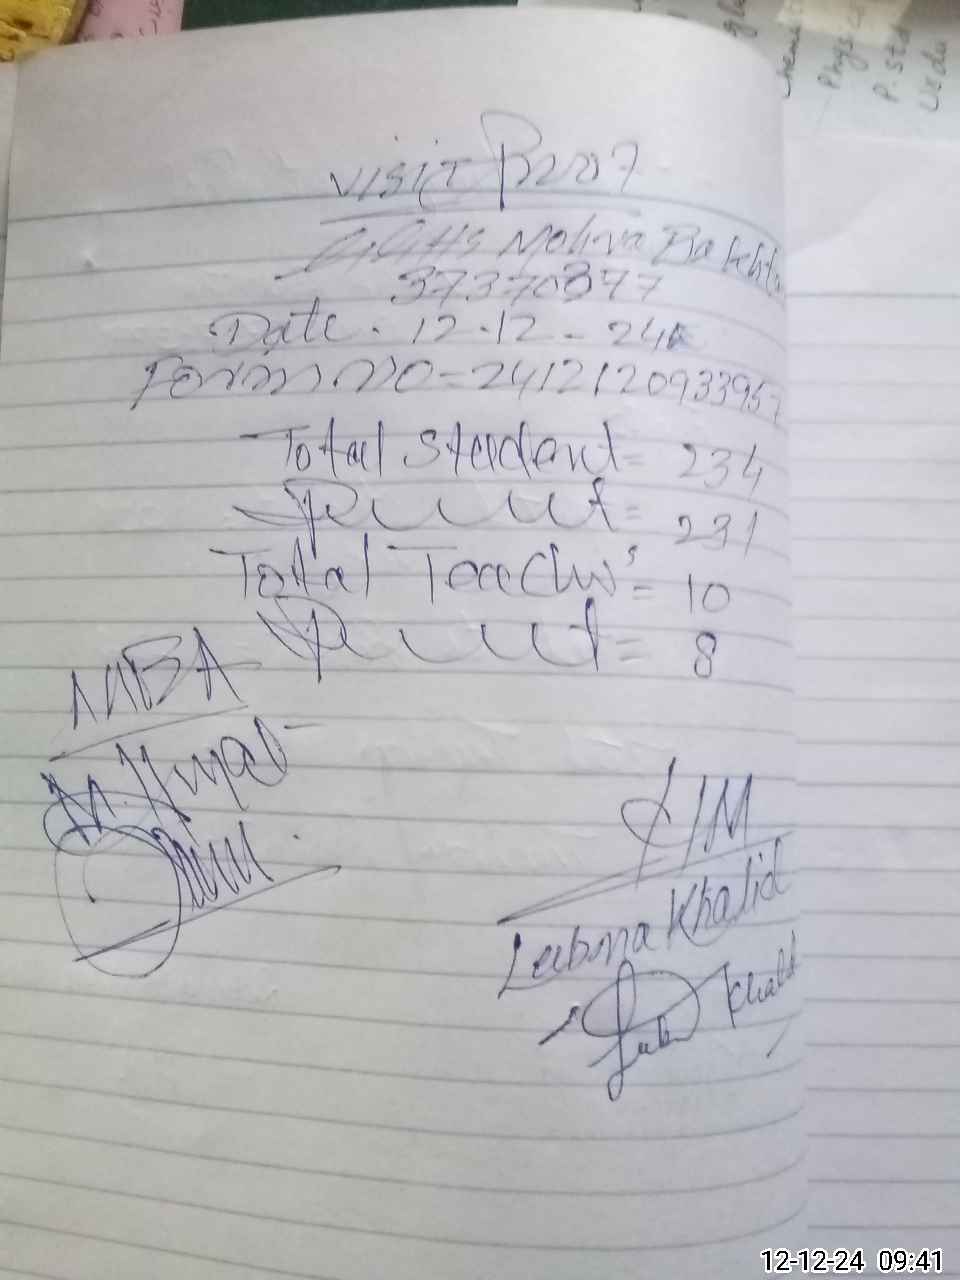 Visit Proof
GGHS Mohra Bakhta
37370347
Date . 12-12-24
Form no-2412120933957
Total Student = 234
Present = 231
Total Teacher's = 10
Present = 8
MBA
H/M
Lubna Khalid
Khalid
Phys
P. st
Urdu
12-12-24 09:41